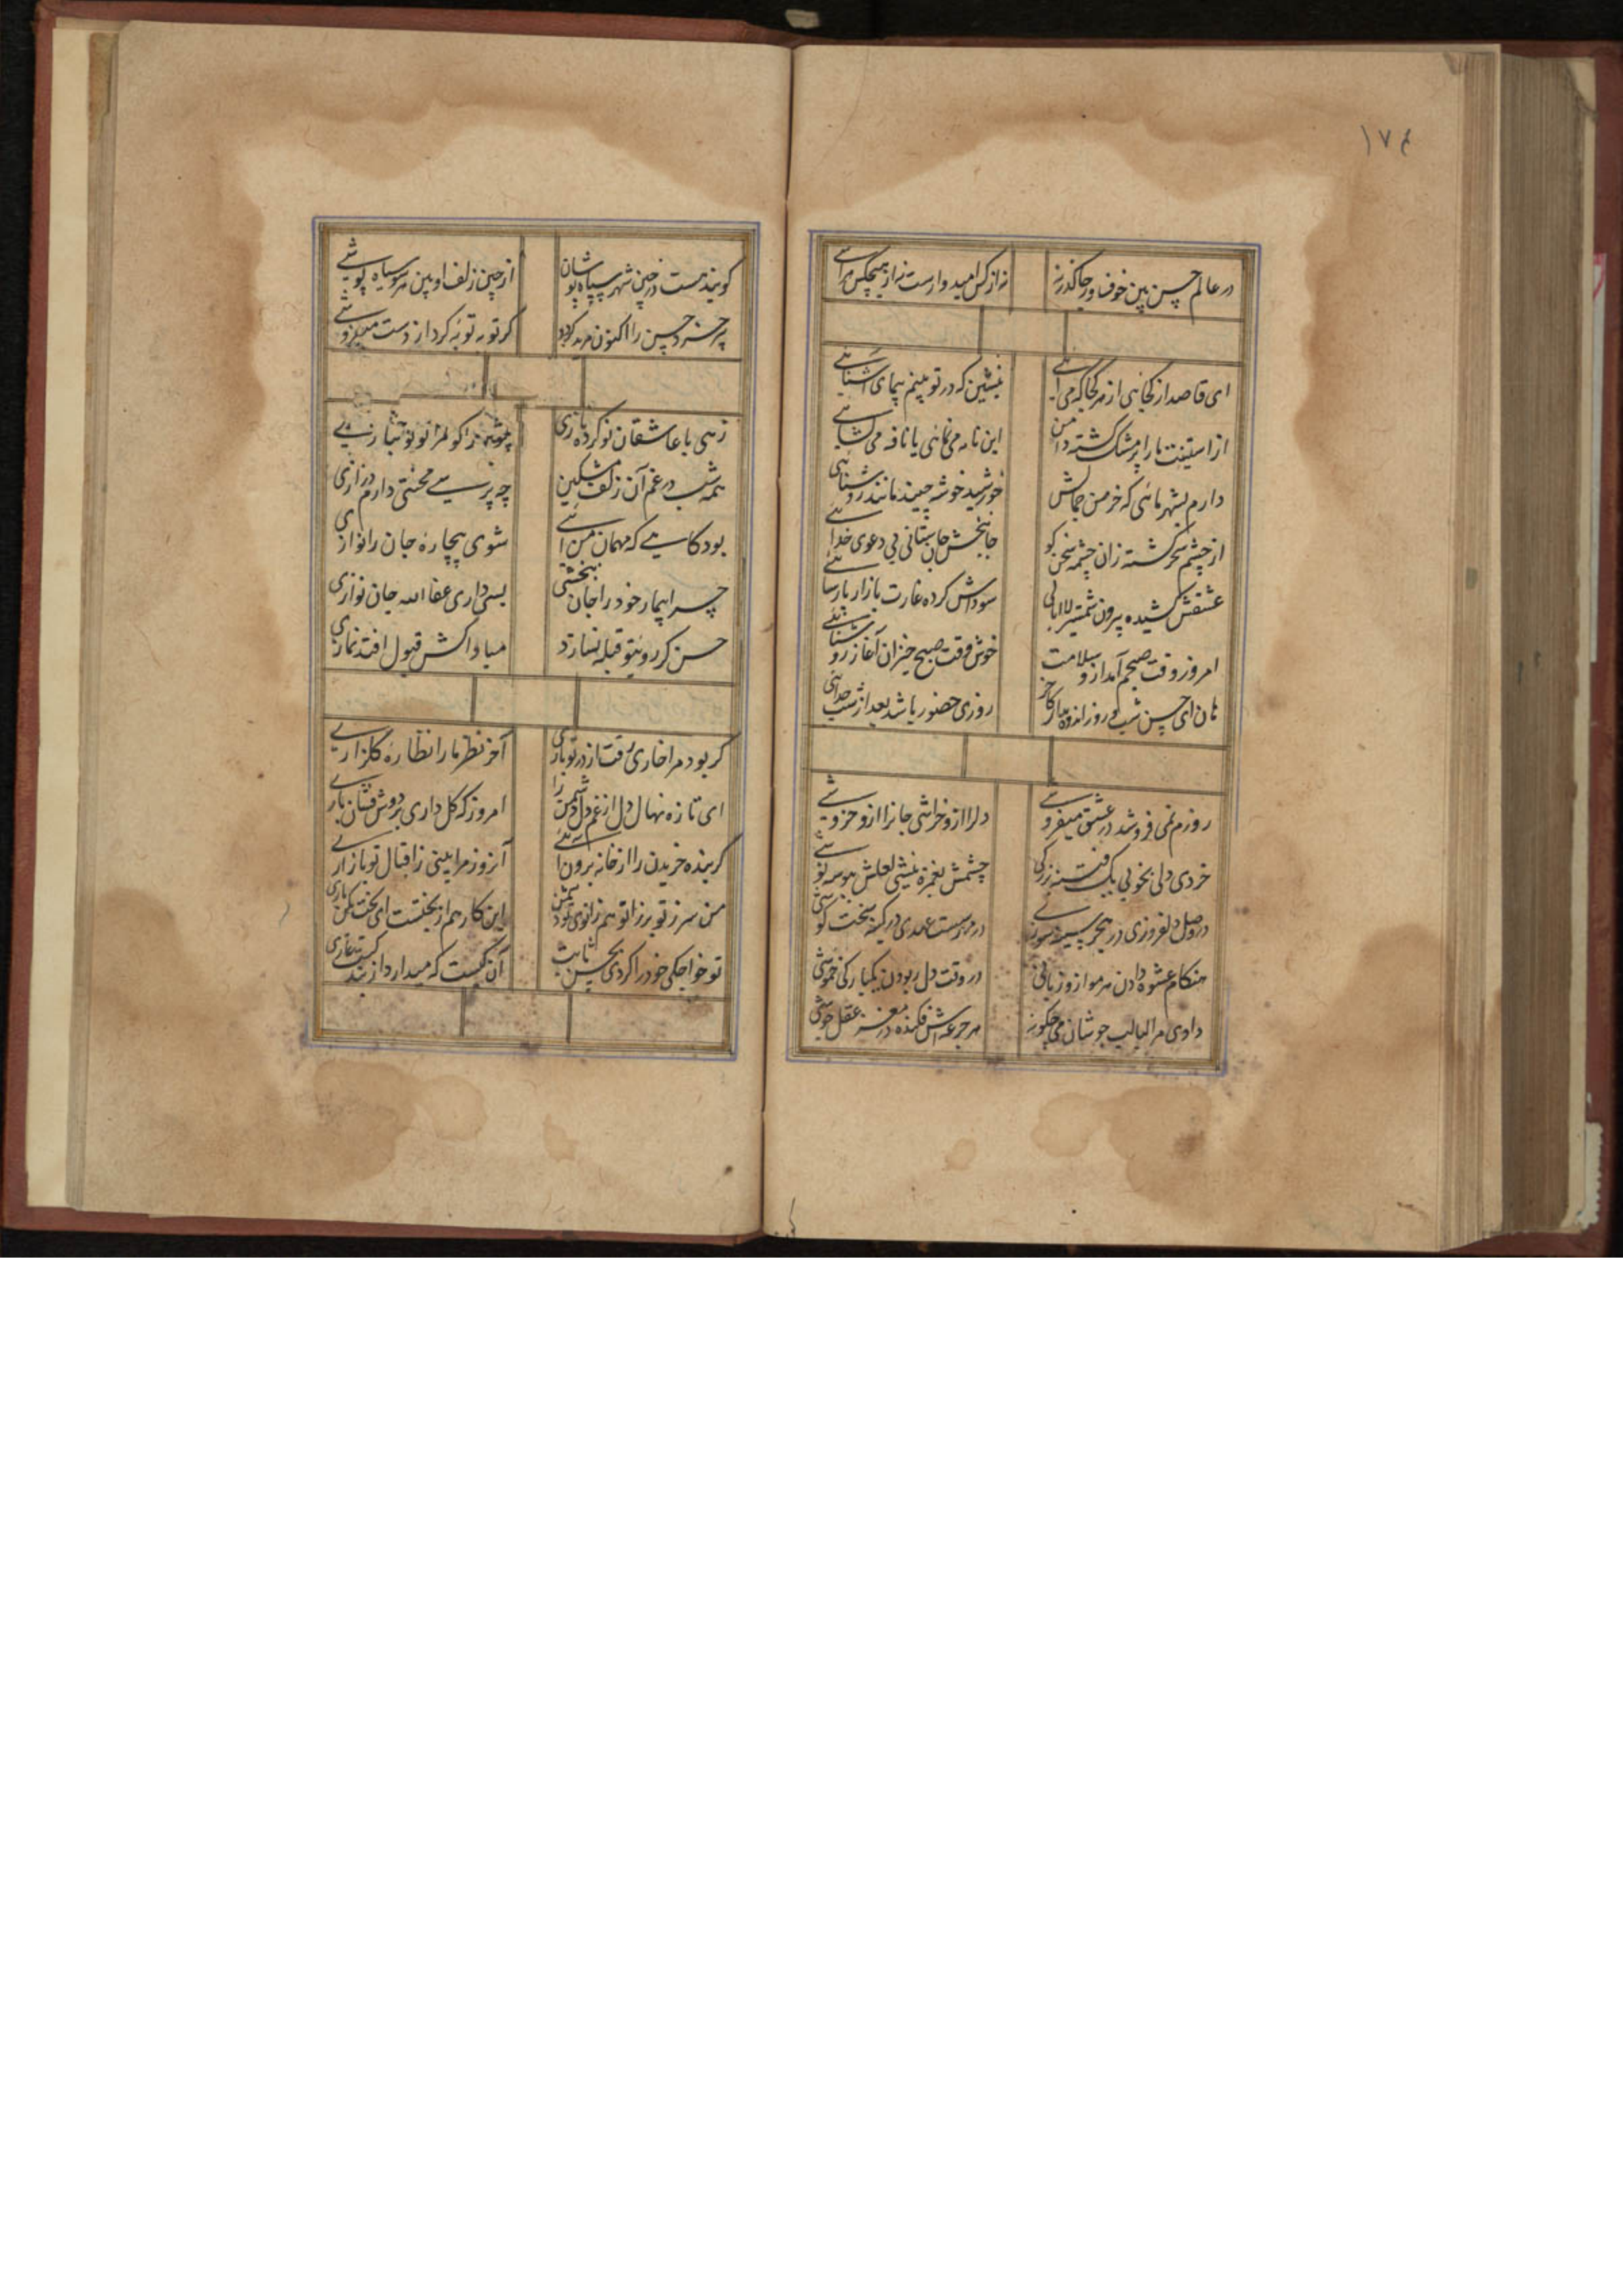 ۱۷۴
در عالم حسن بین خوف و رجا گذر نه
نه از کس امیدوارست نه از هیچکس هراسی
ای قاصد از کجائی از هر کجا که می آئی
بنشین که در تو بینم سیمای آشنائی
از آستینت ما را پر مشک گشته دامن
این نامه می نمائی یا نافه می گشائی
دارم بشهر ماهی که خرمن جمالش
خورشید خوشه چیند مانند روشنائی
از چشم سحر گشته زان چشمه سخن گو
جانبخش جان ستانی بی دعوی خدائی
عشقش کشیده بیرون شمشیر لاابالی
سوداش کرده غارت بازار پارسائی
امروز وقت صبحم آمد ازو سلامت
خوش وقت صبح خیزان آغاز روشنائی
هان ای حسن شب و روز اندوه
روزی حضور باشد بعد از شب جدائی
روزم نمی فروشد در عشق میفروشی
دلرا ازو خراشی جانرا ازو خروشی
خردی ولی بخوبی یک فتنه بزرگی
چشمش بغمزه نیشی لعلش ببوسه نوشی
در وصل دلفروزی در هجر سینه سوزی
در مهر سست عهدی در کینه سخت کوشی
هنگام عشوه دادن هر مو ازو زبانی
در وقت دل ربودن یکبارگی خموشی
دادی مرا لبالب جوشان می چگونه
هر جرعه اش فکنده در مغز عقل جوشی
گویند هست در چین شهر سیاه پوشان
از چین زلف او بین هر سو سیاه پوشی
پیر خرد حسن را اکنون مرید گردد
گر توبه توبه کرد از دست میفروشی
زهی با عاشقان نو کرده بازی
همه شب در غم آن زلف مشکین
چه پرسی محنتی دارم درازی
بود گاهی که مهمان من آئی
شوی بیچاره جان را نوازی
چرا بیمار خود را جان نبخشی
بسی داری عفاالله جان نوازی
حسن گر رو بتو قبله نسازد
مبادا کش قبول افتد نمازی
گر بود مرا خاری رفت از در تو باری
آخر نظر ما را نظاره گلزاری
ای تازه نهال دل از غم دل دشمن را
امروز که گل داری بر دوش فشان باری
گر بنده خریدن را از خانه برون آئی
آنروز مرا بینی ز اقبال تو بازاری
من سر ز تو بر زانو هم زانوی تو دشمن
این کار هم از بختست ای بخت بکن باری
تو خواجگی خود را کردی بحسن ثابت
آن کیست که میدارد از بندگیت عاری